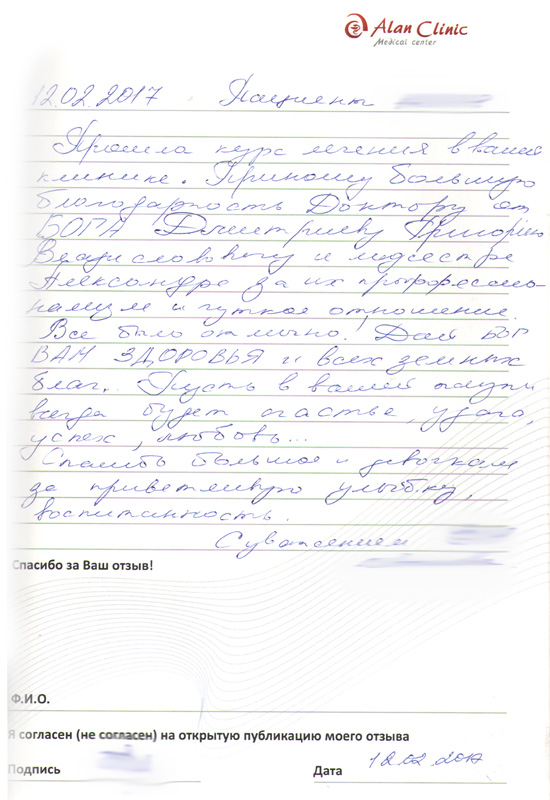 Alan Clinic
Medical center
12.02.2017 Пациент
Прошла курс лечения в вашей
клинике. Приношу большую
благодарность Доктору от
БОГА Дмитриеву Григорию
Владиславовичу и медсестре
Александре за их профессио-
нализм и чуткое отношение.
Все было отлично! Дай БОГ
ВАМ ЗДОРОВЬЯ и всех земных
благ. Пусть в вашей жизни
всегда будет счастье, удача,
успех, любовь...
Спасибо большое и девочкам
за приветливую улыбку,
воспитанность.
С уважением
Спасибо за Ваш отзыв!
Ф.И.О.
Я согласен (не согласен) на открытую публикацию моего отзыва
Подпись Дата 12.02.2017